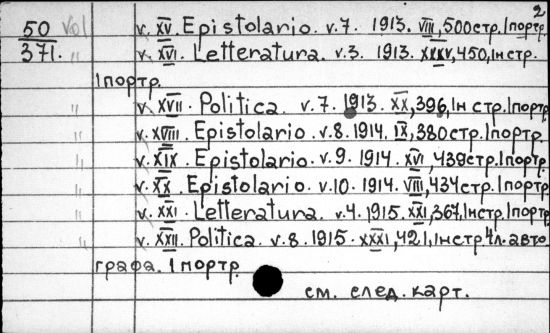 2
50 Vol v. XV Epistolario. v.7. 1913. VIII, 500стр. 1портр.
371. " v. XVI. Letteratura. v.3. 1913. XXXV, 450, 1нстр.
1портр.
" v. XVII. Politica. v.7. 1913. XX, 396, 1н стр. 1портр
" v. XVIII. Epistolario. v.8. 1914. IX, 380стр. 1портр.
" v. XIX. Epistolario. v.9. 1914. XVI, 439стр. 1портр.
" v. XX. Epistolario. v.10. 1914. VIII, 434стр. 1портр.
" v. XXI. Letteratura. v.4. 1915. XXI, 367, 1нстр. 1портр
" v. XXII. Politica. v.8. 1915. XXXI, 421, 1нстр. 4л. авто
графа. 1портр.
см. след. карт.